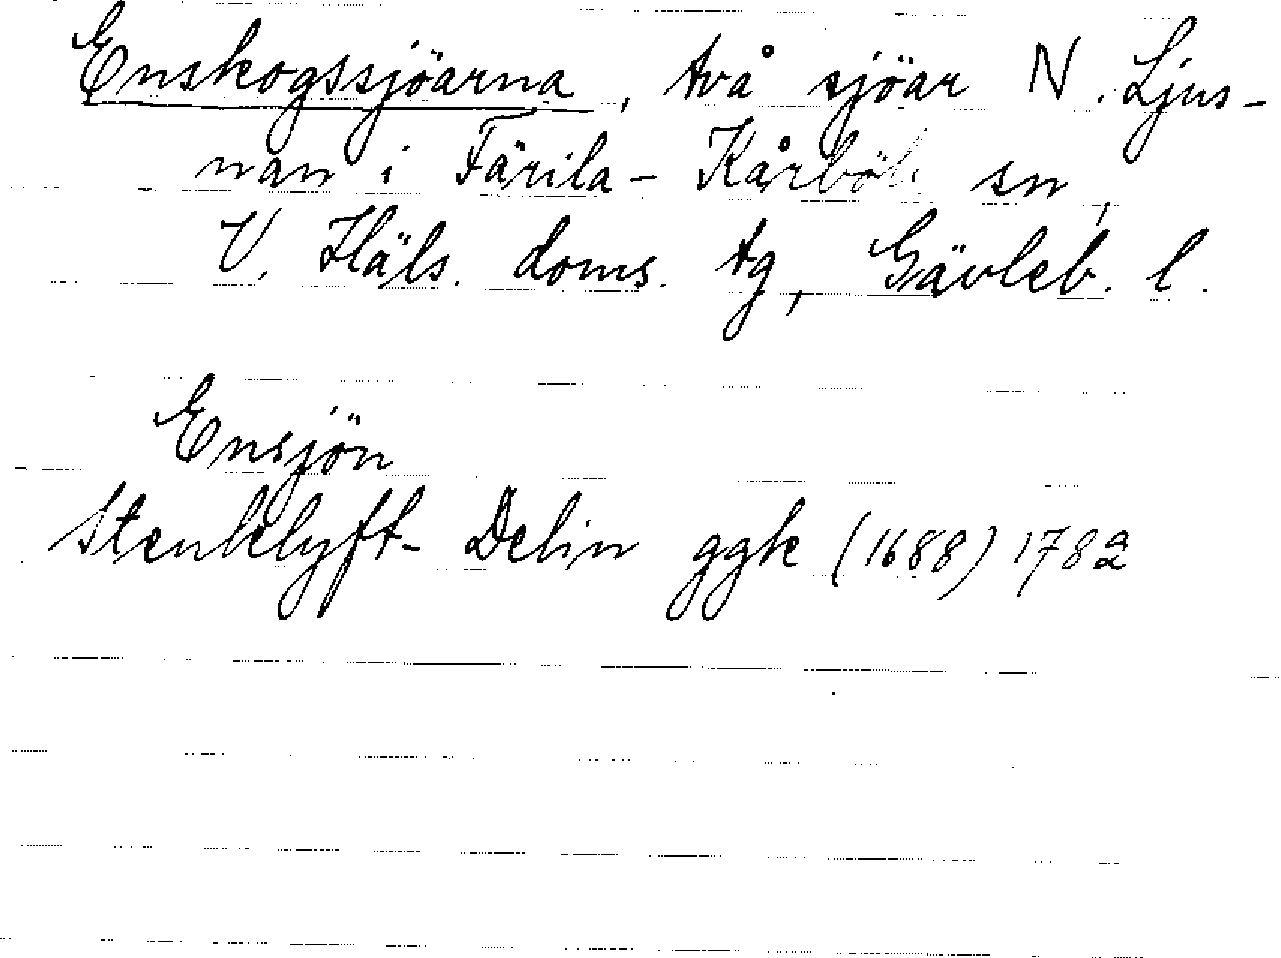 Enskogssjöarna, två sjöar N. Ljus-
nan i Färila-Kårböle sn,
V. Häls. doms. tg, Gävleb. l.
Ensjön
Stenklyft- Delin ggk (1688) 1782